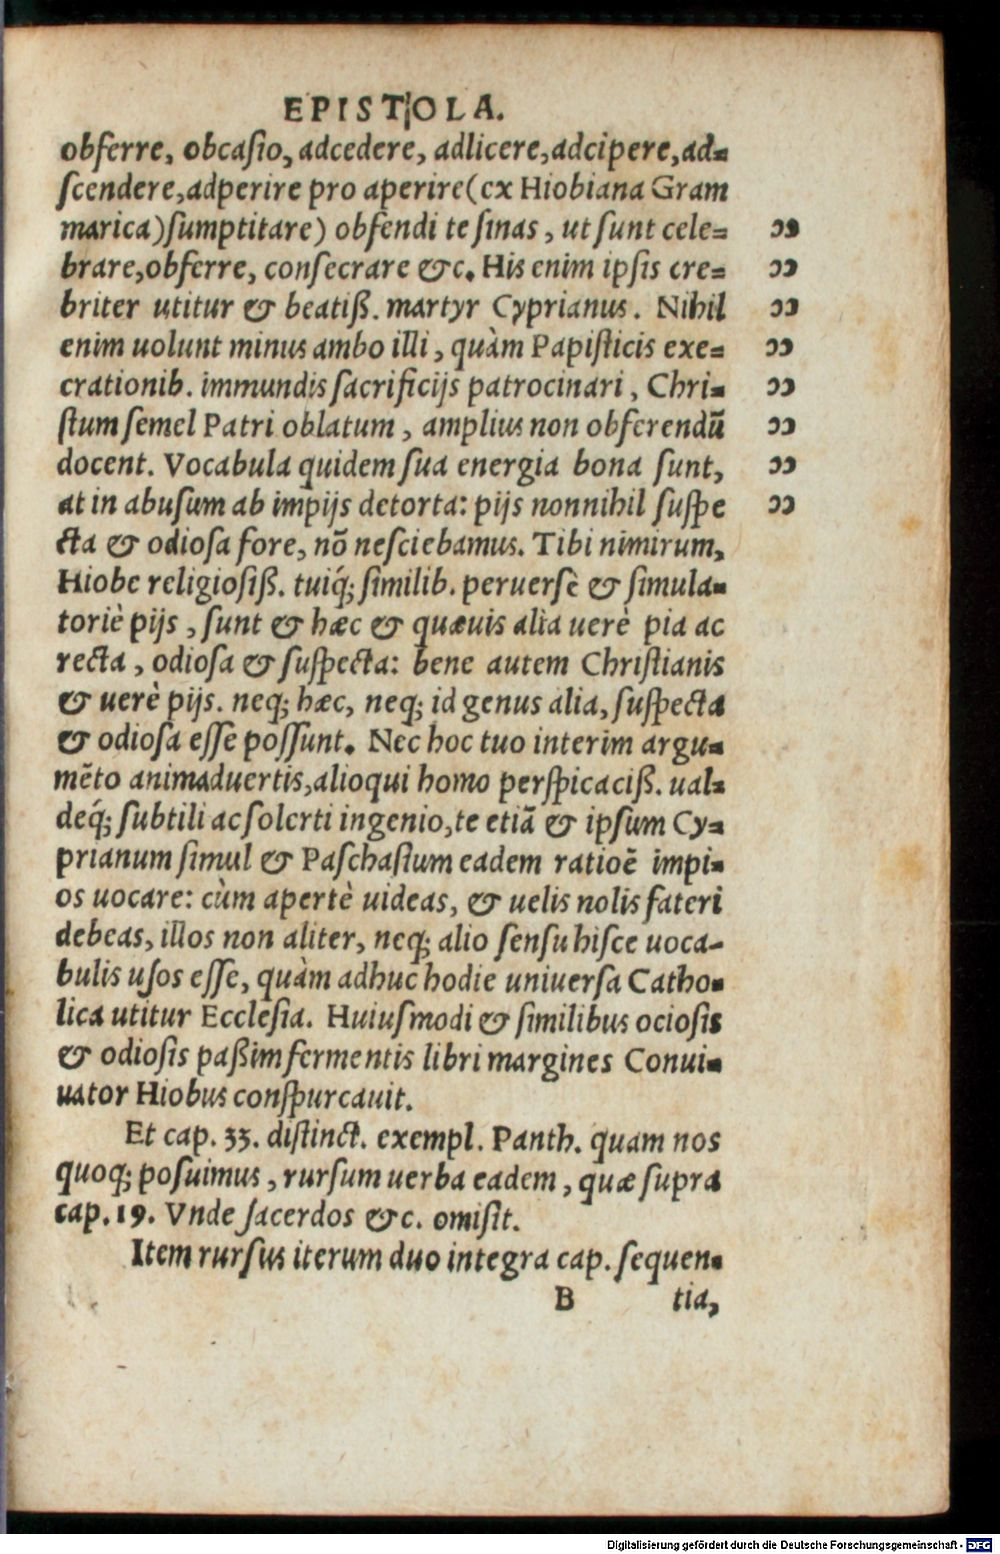 EPISTOLA.
obferre, obcaſio, adcedere, adlicere, adcipere, ad-
ſcendere, adperire pro aperire (ex Hiobiana Gram
marica) ſumptitare) obfendi te ſinas, ut ſunt cele- ”
brare, obferre, conſecrare &c. His enim ipſis cre- ”
briter utitur & beatiß. martyr Cyprianus. Nihil ”
enim uolunt minus ambo illi, quàm Papiſticis exe- ”
crationib. immundis ſacrificijs patrocinari, Chri- ”
ſtum ſemel Patri oblatum, amplius non obferendū ”
docent. Vocabula quidem ſua energia bona ſunt, ”
at in abuſum ab impijs detorta: pijs nonnihil ſuſpe ”
cta & odioſa fore, nō neſciebamus. Tibi nimirum,
Hiobe religioſiß. tuiq́; ſimilib. peruerſè & ſimula-
toriè pijs, ſunt & hæc & quæuis alia uerè pia ac
recta, odioſa & ſuſpecta: bene autem Chriſtianis
& uerè pijs. neq; hæc, neq; id genus alia, ſuſpecta
& odioſa eſſe poſſunt. Nec hoc tuo interim argu-
mēto animaduertis, alioqui homo perſpicaciß. ual-
deq́; ſubtili ac ſolerti ingenio, te etiā & ipſum Cy-
prianum ſimul & Paſchaſium eadem ratioē impi-
os uocare: cùm apertè uideas, & uelis nolis fateri
debeas, illos non aliter, neq; alio ſenſu hiſce uoca-
bulis uſos eſſe, quàm adhuc hodie univerſa Catho-
lica utitur Eccleſia. Huiuſmodi & ſimilibus ocioſis
& odioſis paßim fermentis libri margines Conui-
uator Hiobus conſpurcauit.
Et cap. 33. diſtinct. exempl. Panth. quam nos
quoq; poſuimus, rurſum uerba eadem, quæ ſupra
cap. 19. Vnde ſacerdos &c. omiſit.
Item rurſus iterum duo integra cap. ſequen-
B tia,
Digitalisierung gefördert durch die Deutsche Forschungsgemeinschaft - DFG